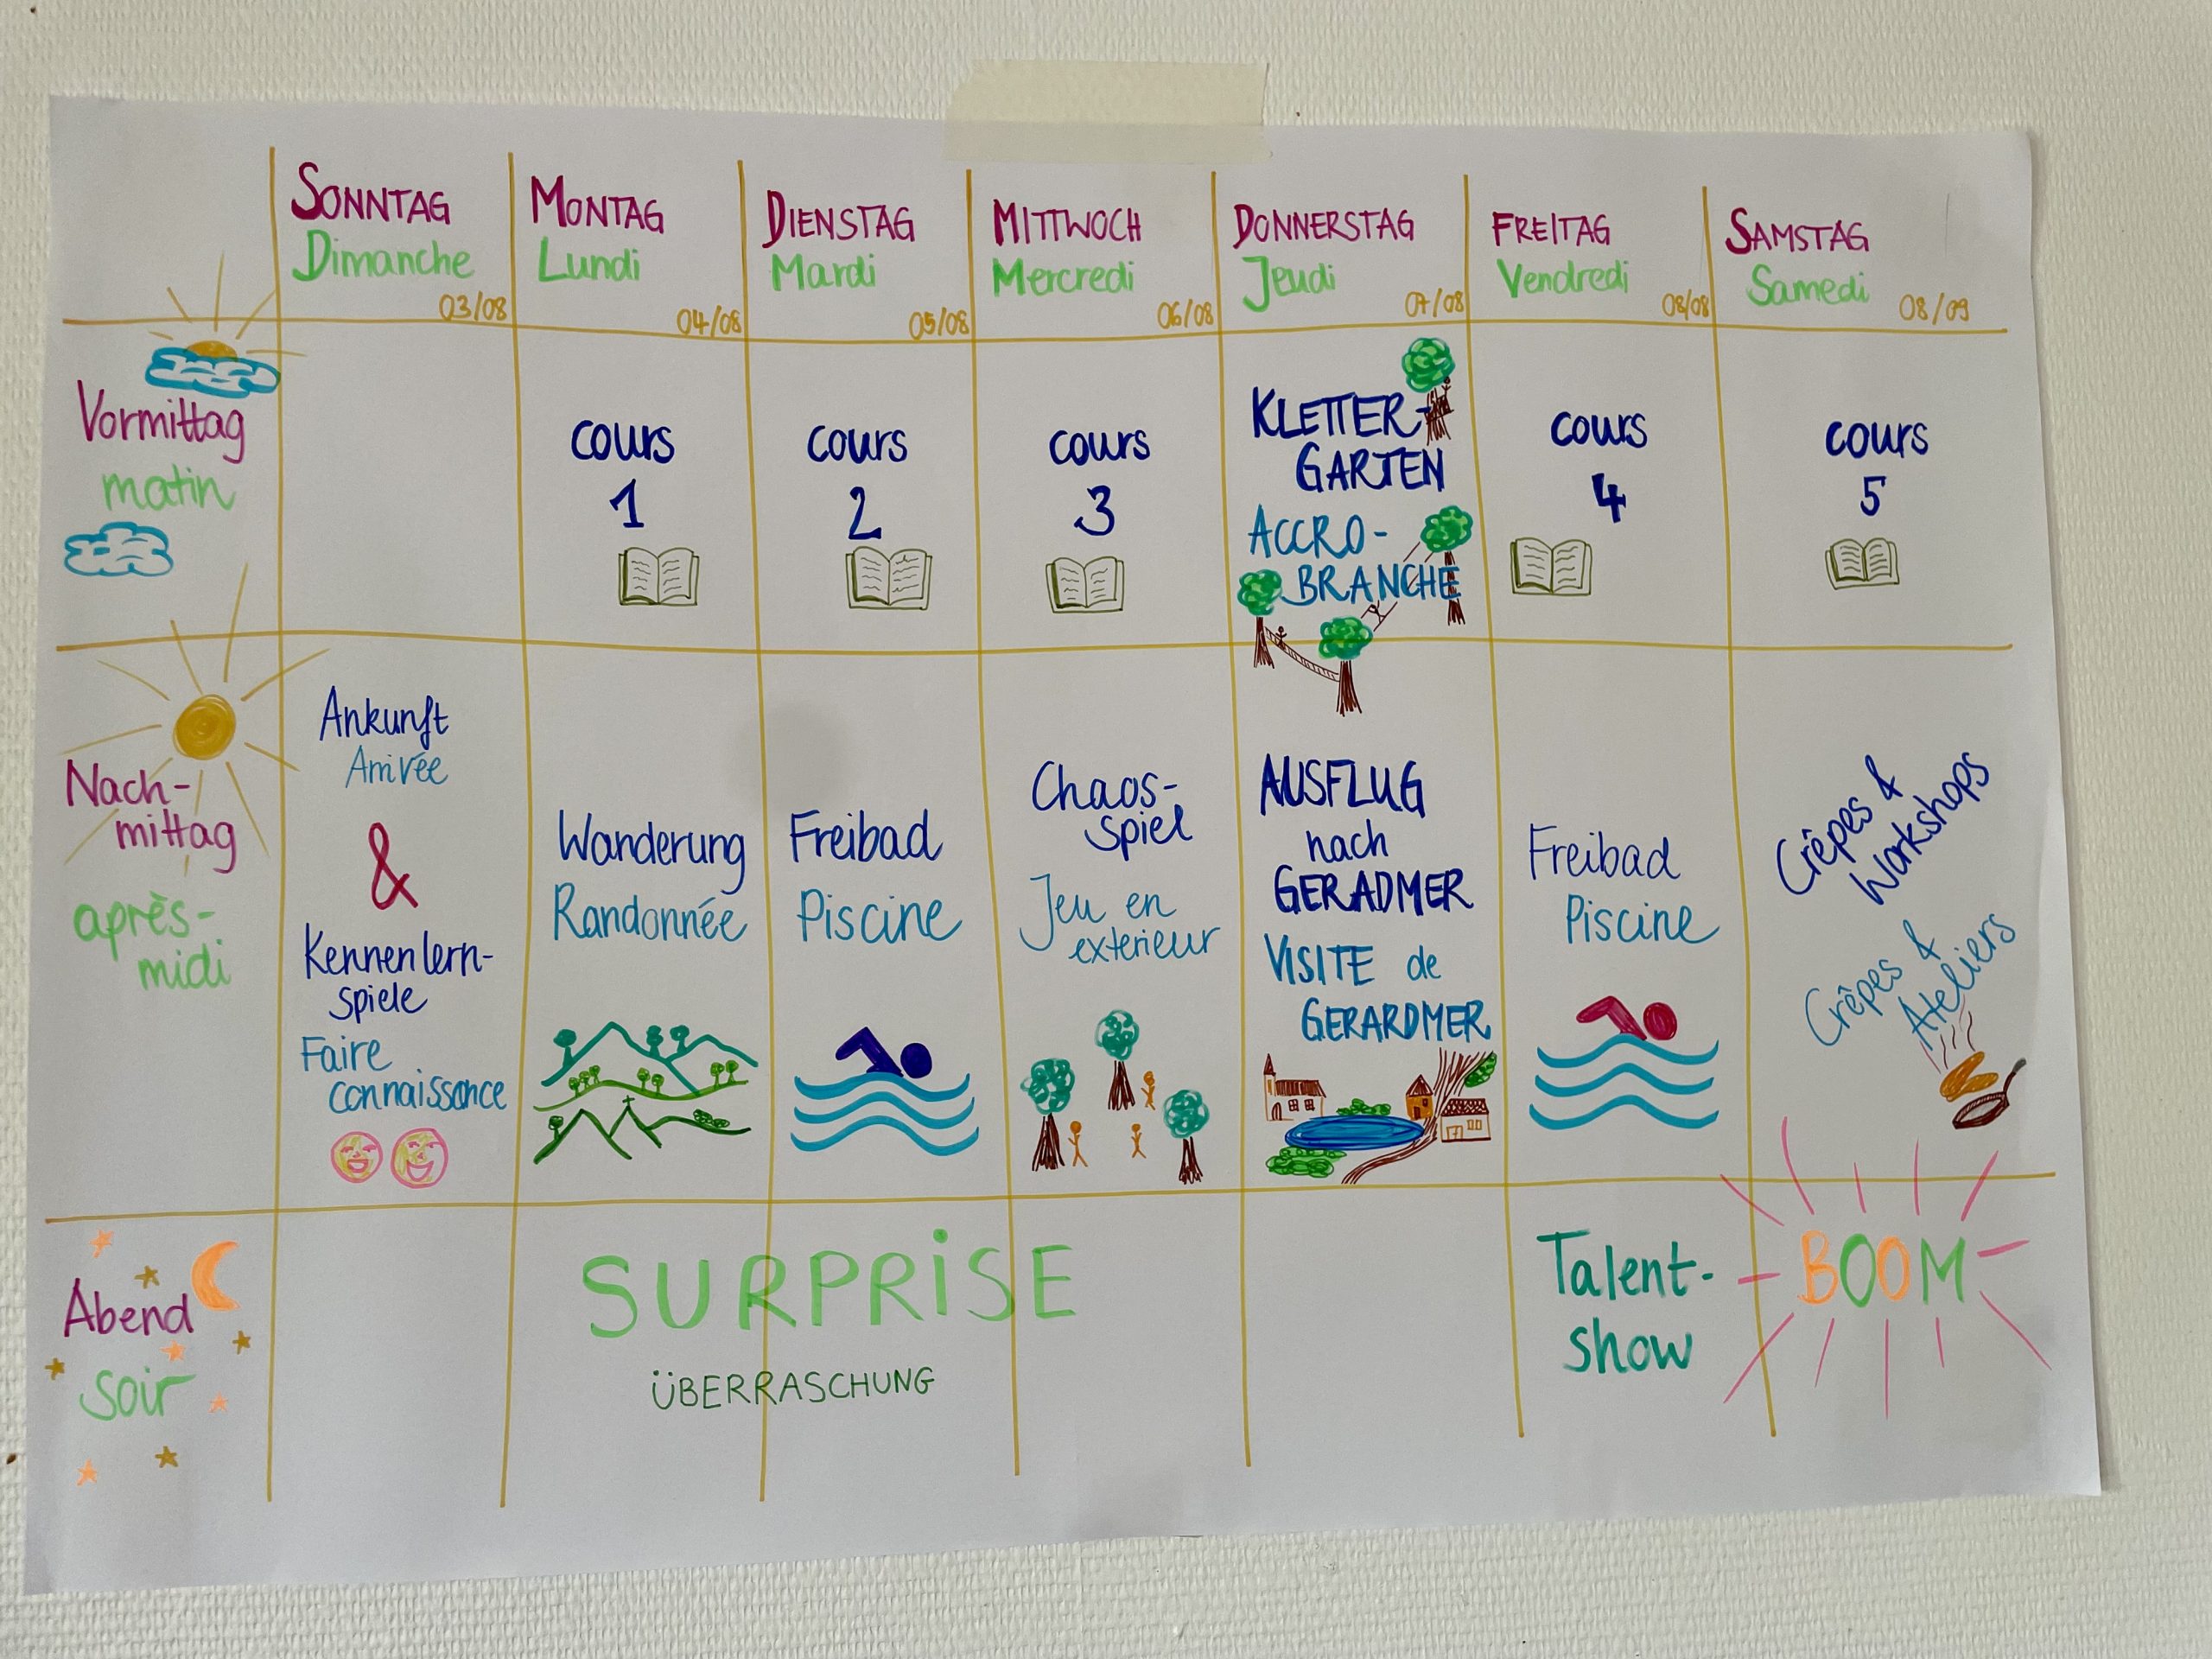 SONNTAG
Dimanche
03/08
MONTAG
Lundi
04/08
DIENSTAG
Mardi
05/08
MITTWOCH
Mercredi
06/08
DONNERSTAG
Jeudi
07/08
FREITAG
Vendredi
08/08
SAMSTAG
Samedi
08/09
Vormittag
matin
cours
1
cours
2
cours
3
KLETTER-
GARTEN
ACCRO-
BRANCHE
cours
4
cours
5
Nach-
mittag
après-
midi
Ankunft
Arrivée
&
Kennenlern-
spiele
Faire
connaissance
Wanderung
Randonnée
Freibad
Piscine
Chaos-
spiel
Jeu en
exterieur
AUSFLUG
nach
GERADMER
VISITE de
GERARDMER
Freibad
Piscine
Crêpes &
Workshops
Crêpes &
Ateliers
Abend
soir
SURPRISE
ÜBERRASCHUNG
Talent-
show
BOOM